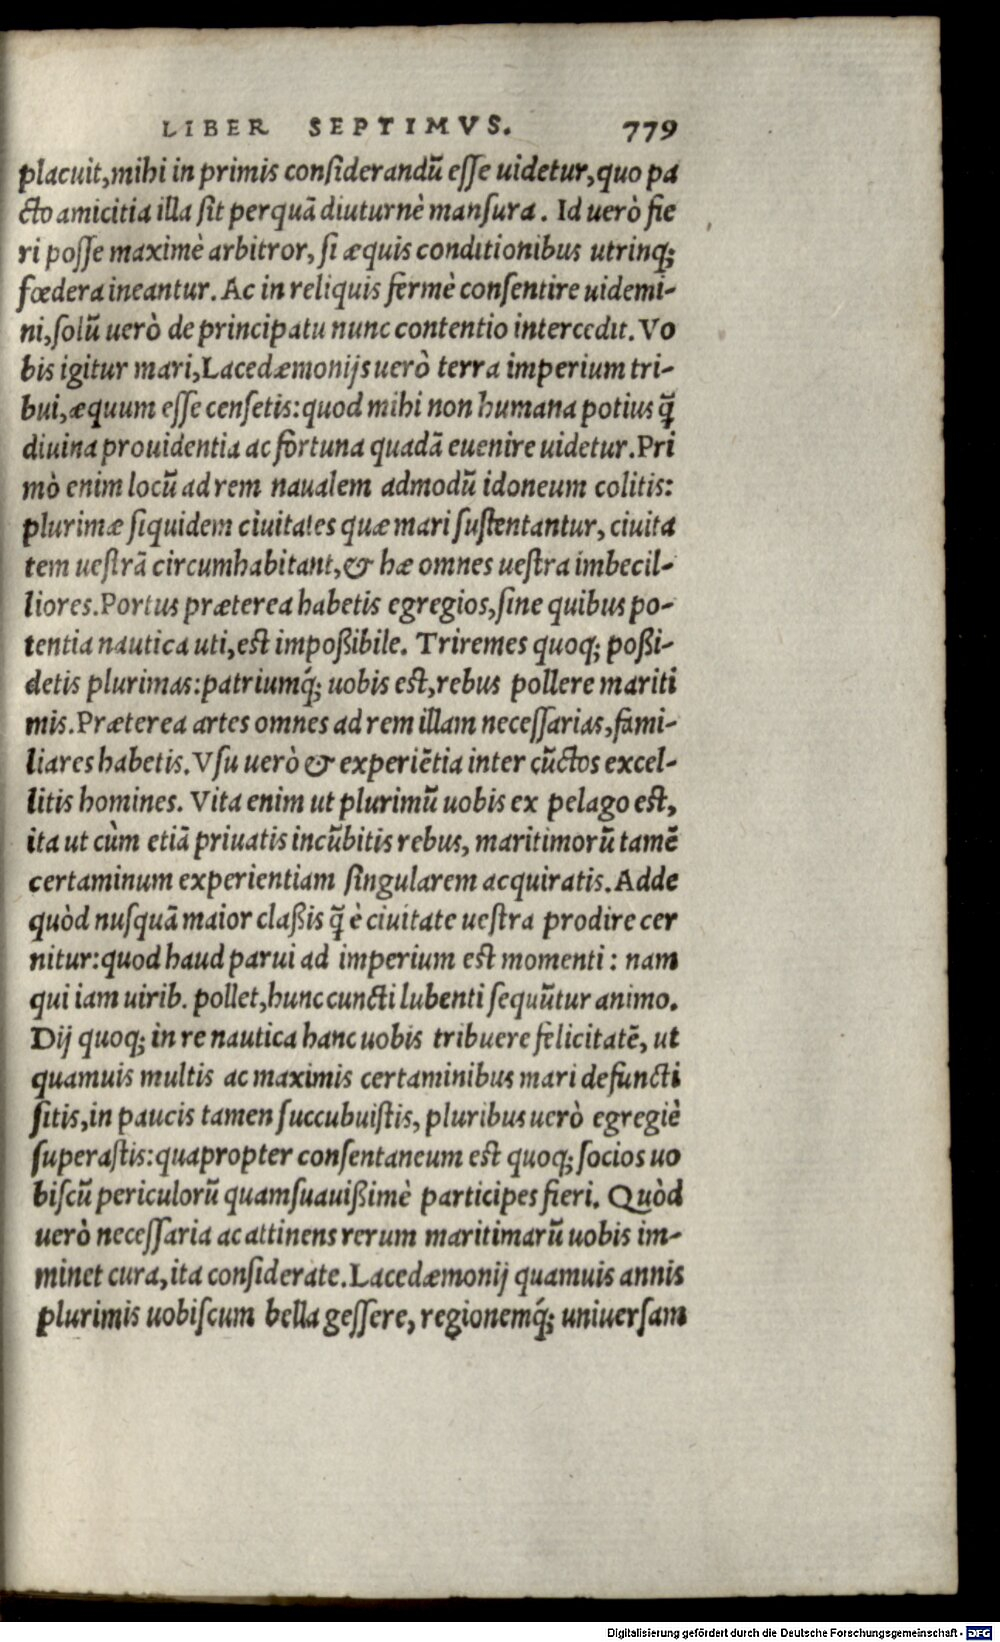 LIBER SEPTIMVS. 779
placuit,mihi in primis considerandū esse uidetur,quo pa
cto amicitia illa sit perquā diuturnè mansura. Id uerò fie
ri posse maximè arbitror, si æquis conditionibus utrinq;
fœdera ineantur. Ac in reliquis fermè consentire uidemi-
ni,solū uerò de principatu nunc contentio intercedit. Vo
bis igitur mari,Lacedæmonijs uerò terra imperium tri-
bui,æquum esse censetis:quod mihi non humana potius q̄
diuina prouidentia ac fortuna quadā euenire uidetur.Pri
mò enim locū ad rem naualem admodū idoneum colitis:
plurimæ siquidem ciuitates quæ mari sustentantur, ciuita
tem uestrā circumhabitant,& hæ omnes uestra imbecil-
liores.Portus præterea habetis egregios,sine quibus po-
tentia nautica uti,est impoßibile. Triremes quoq; poßi-
detis plurimas:patriumq́; uobis est,rebus pollere mariti
mis.Præterea artes omnes ad rem illam necessarias,fami-
liares habetis.Vsu uerò & experiētia inter cūctos excel-
litis homines. Vita enim ut plurimū uobis ex pelago est,
ita ut cùm etiā priuatis incūbitis rebus, maritimorū tamē
certaminum experientiam singularem acquiratis.Adde
quòd nusquā maior claßis q̄ è ciuitate uestra prodire cer
nitur:quod haud parui ad imperium est momenti: nam
qui iam uirib. pollet,hunc cuncti lubenti sequūtur animo.
Dij quoq; in re nautica hanc uobis tribuere felicitatē, ut
quamuis multis ac maximis certaminibus mari defuncti
sitis,in paucis tamen succubuistis, pluribus uerò egregiè
superastis:quapropter consentaneum est quoq; socios uo
biscū periculorū quamsuauißimè participes fieri. Quòd
uerò necessaria ac attinens rerum maritimarū uobis im-
minet cura,ita considerate.Lacedæmonij quamuis annis
plurimis uobiscum bella gessere, regionemq́; uniuersam
Digitalisierung gefördert durch die Deutsche Forschungsgemeinschaft - DFG